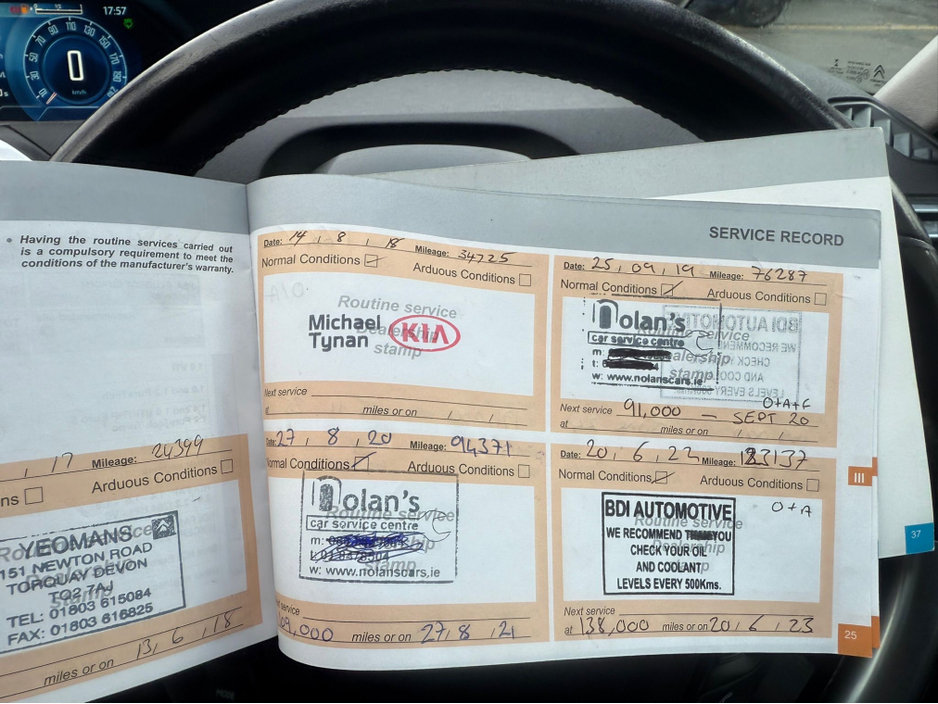 17:57
10 30 50 70 90 110 130 150 170 190
0
km/h
• Having the routine services carried out
is a compulsory requirement to meet the
conditions of the manufacturer's warranty.
, 17 Mileage: 24399
ns Arduous Conditions
YEOMANS
151 NEWTON ROAD
TORQUAY DEVON
TQ2 7AJ
TEL: 01803 615084
FAX: 01803 616825
miles or on 13, 6, 18
SERVICE RECORD
Date: 14, 8, 18 Mileage: 34725
Normal Conditions Arduous Conditions
Routine service
Dealership
stamp
Michael
Tynan KIA
Next service
at miles or on , ,
Date: 25, 09, 19 Mileage: 76287
Normal Conditions Arduous Conditions
nolan's
car service centre
m:
t:
w: www.nolanscars.ie
Dealership
stamp
BDI AUTOMOTIVE
WE RECOMMEND
CHECK YOUR OIL
AND COOLANT
LEVELS EVERY
O+A+F
Next service 91,000 — SEPT 20
at miles or on , ,
Date: 27, 8, 20 Mileage: 94371
ormal Conditions Arduous Conditions
nolan's
car service centre
Routine service
Dealership
stamp
m:
w: www.nolanscars.ie
service
09,000 miles or on 27, 8, 21
Date: 20, 6, 22 Mileage: 123137
Normal Conditions Arduous Conditions
BDI AUTOMOTIVE
WE RECOMMEND YOU
CHECK YOUR OIL
AND COOLANT
LEVELS EVERY 500Kms.
Routine service
Dealership
O+A
Next service
at 138,000 miles or on 20, 6, 23
III
37
25